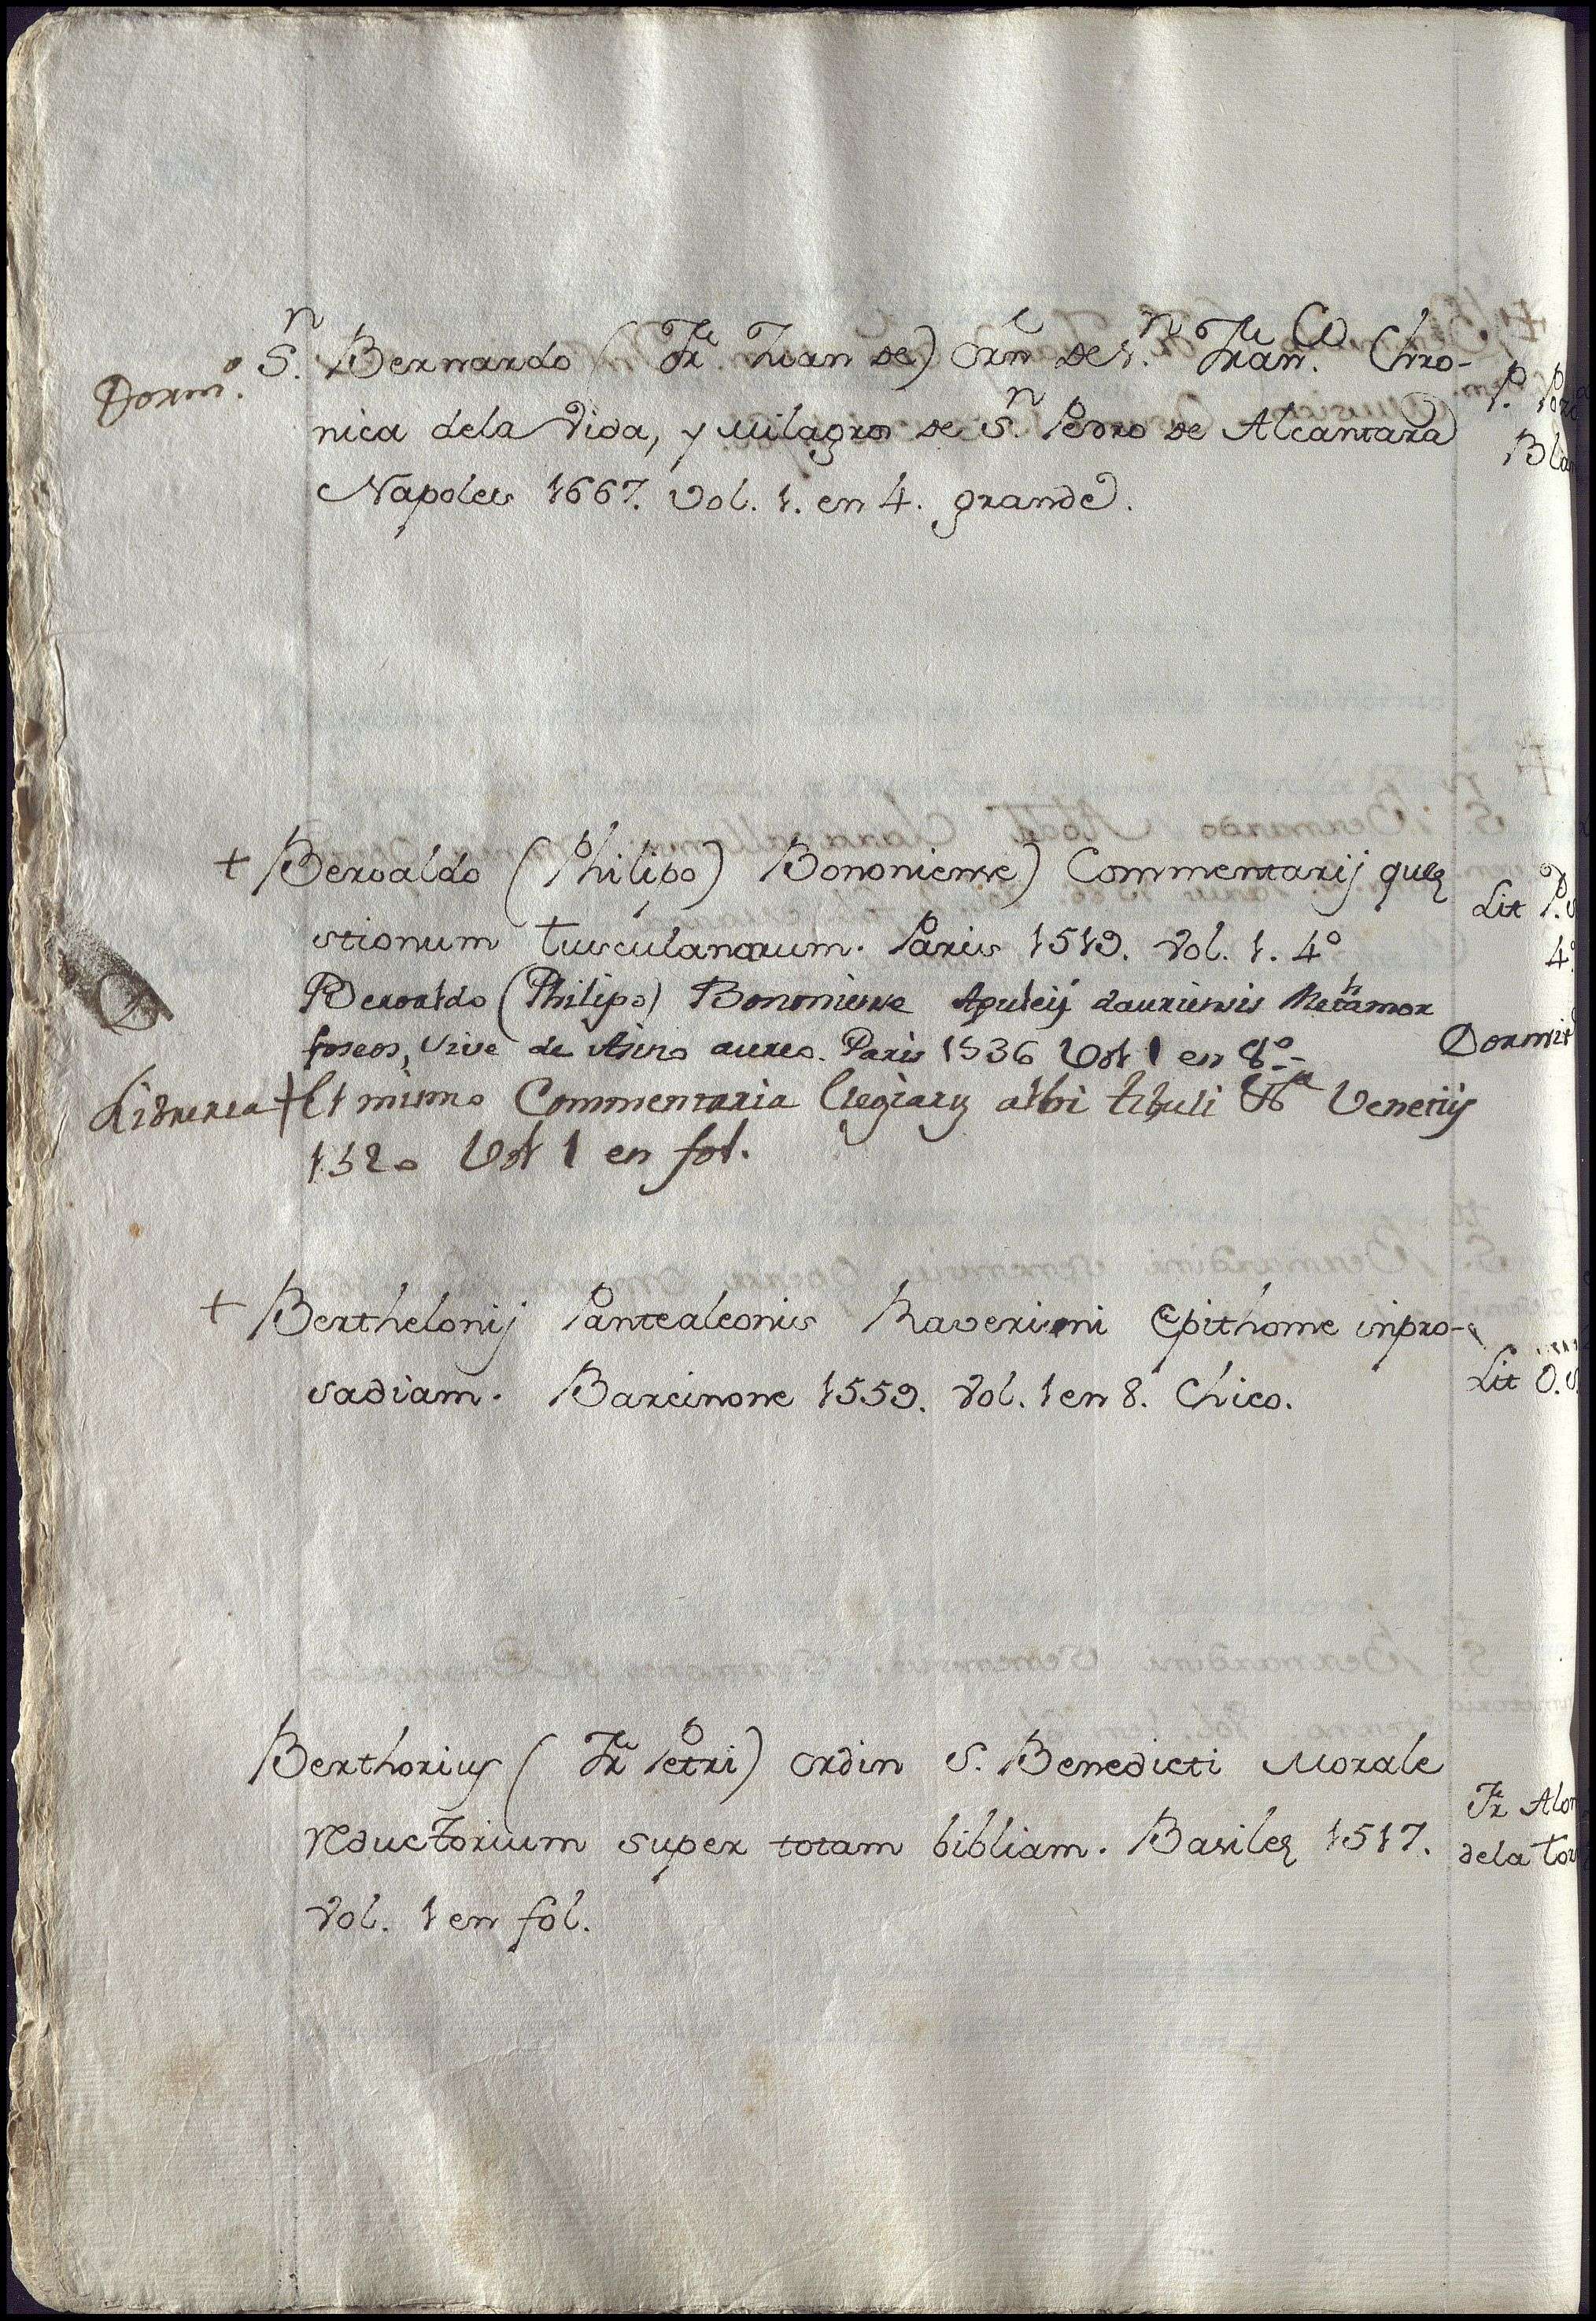 Dorm.º
S.n Bernardo (Fr. Juan de) Orn de N. Fran.co Chro-
nica dela Vida, y Milagros de S.n Pedro de Alcantara
Napoles 1667. Vol. 1. en 4. grande.
P.
Bla
+ Beroaldo (Philipo) Bononiense) Commentarij quę
stionum tusculanarum. Paris 1519. Vol. 1. 4º
Lit P.
4º
Beroaldo (Philipo) Bononiense Apuleij Metamor
foseos, sive de Asino aureo. Paris 1536 Vol 1 en 8º
Dormit
Libreria + El mismo Commentaria Elegiarū albi tibuli Venetijs
1520 Vol 1 en fol.
+ Berthelonij Pantealeonis Raverini Epithome inpro-
sadiam. Barcinone 1559. Vol. 1 en 8. Chico.
Lit O.
Berthorius (Fr Petri) Ordin S. Benedicti Morale
reductorium super totam bibliam. Basileę 1517.
Vol. 1 en fol.
Fr Alon
dela Tor